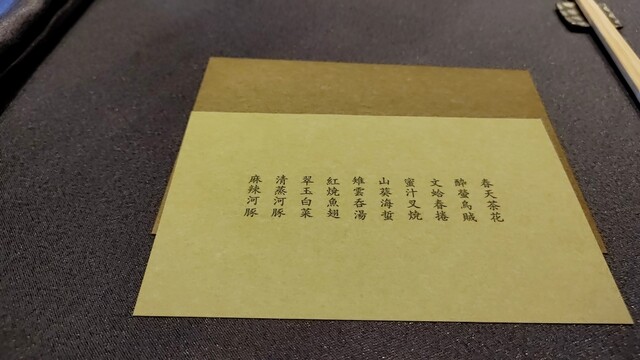 春天茶花
醉螢烏賊
文蛤春捲
蜜汁叉燒
山葵海蜇
雉雲吞湯
紅燒魚翅
翠玉白菜
清蒸河豚
麻辣河豚